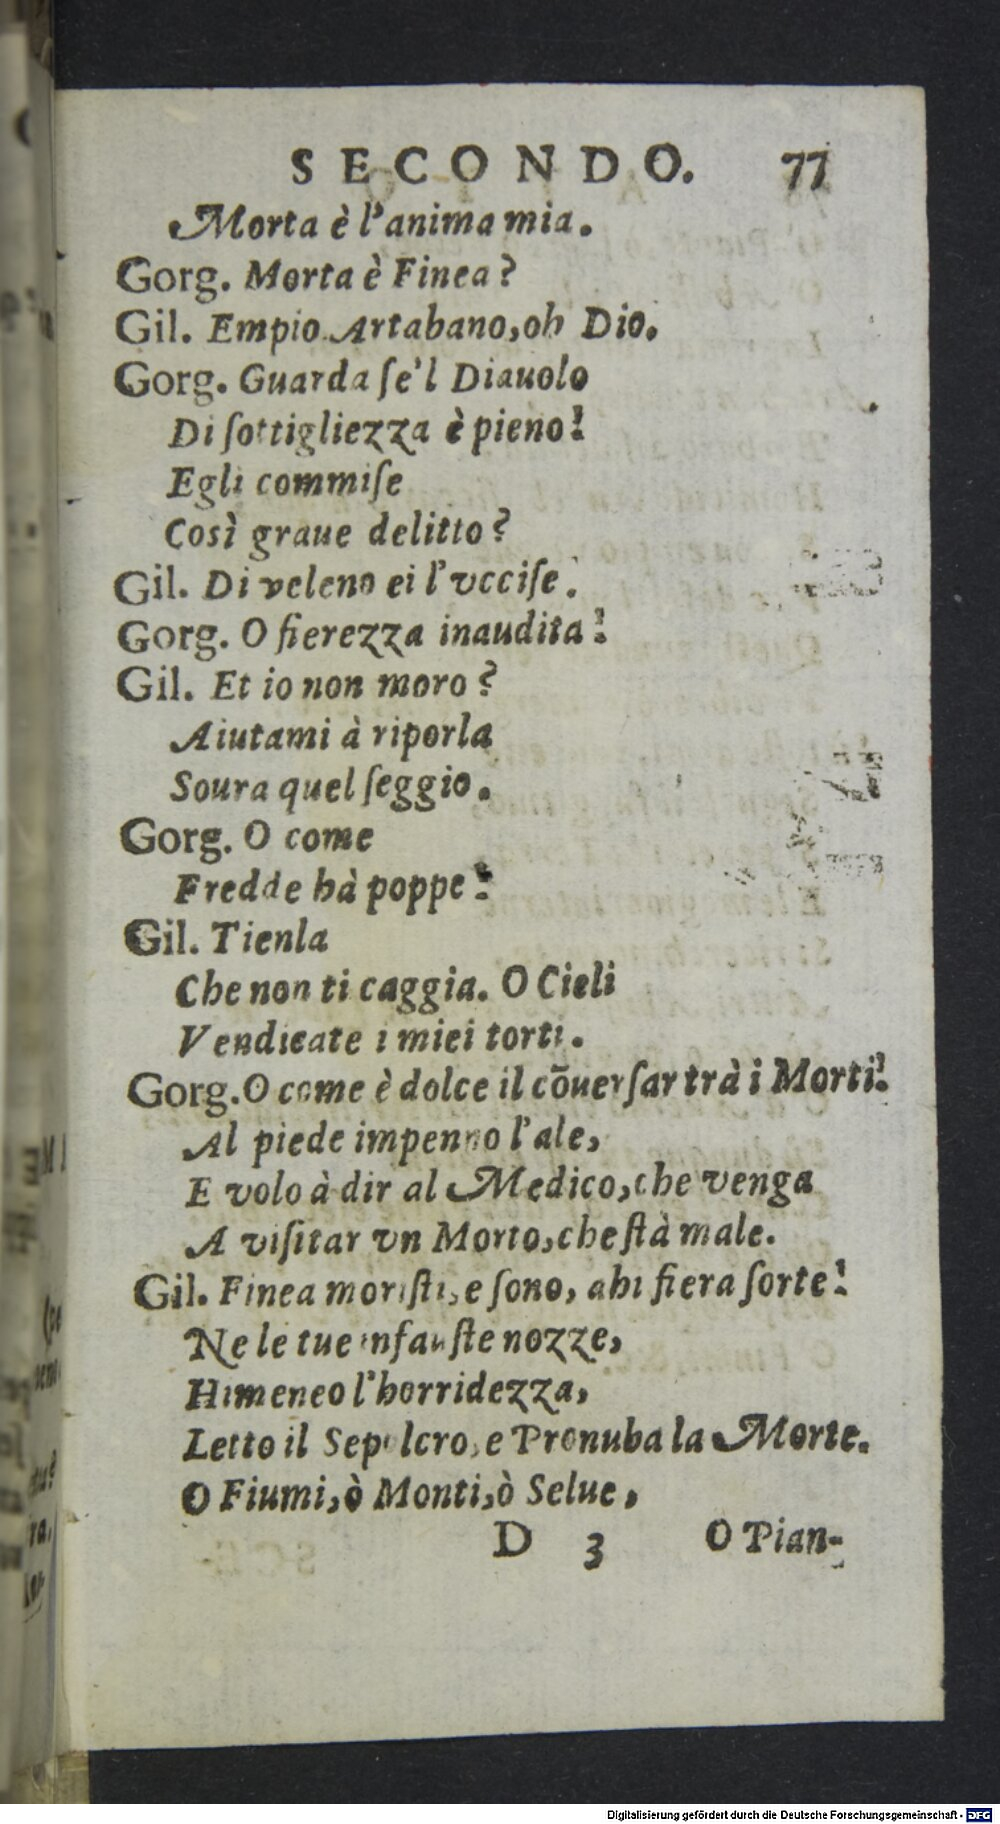 SECONDO. 77
Morta è l'anima mia.
Gorg. Morta è Finea?
Gil. Empio Artabano, oh Dio.
Gorg. Guarda ſe'l Diauolo
Di ſottigliezza è pieno!
Egli commiſe
Così graue delitto?
Gil. Di veleno ei l'vcciſe.
Gorg. O fierezza inaudita!
Gil. Et io non moro?
Aiutami à riporla
Soura quel ſeggio.
Gorg. O come
Fredde hà poppe!
Gil. Tienla
Che non ti caggia. O Cieli
Vendicate i miei torti.
Gorg. O come è dolce il cōuerſar trà i Morti!
Al piede impenno l'ale,
E volo à dir al Medico, che venga
A viſitar vn Morto, che ſtà male.
Gil. Finea moriſti, e ſono, ahi fiera ſorte!
Ne le tue infauſte nozze,
Himeneo l'horridezza,
Letto il Sepolcro, e Pronuba la Morte.
O Fiumi, ò Monti, ò Selue,
D 3 O Pian-
Digitalisierung gefördert durch die Deutsche Forschungsgemeinschaft - DFG